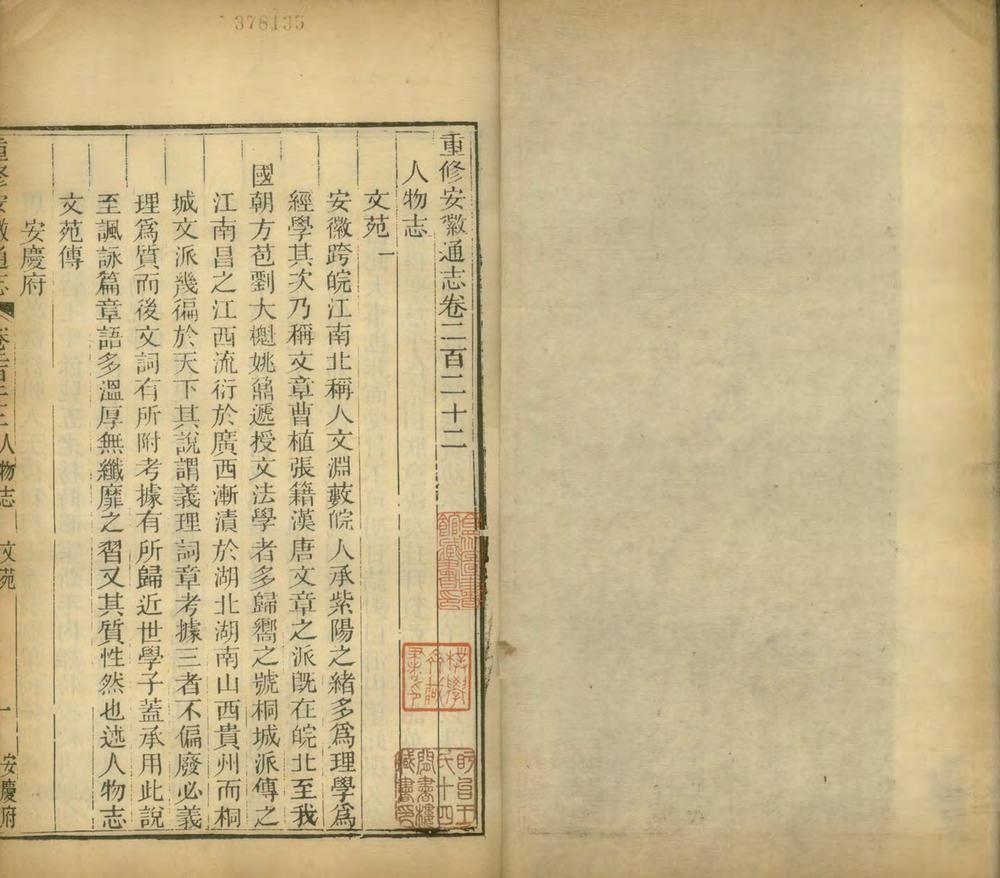 378135
重修安徽通志卷二百二十二
人物志
文苑一
安徽跨皖江南北稱人文淵藪皖人承紫陽之緒多爲理學爲
經學其次乃稱文章曹植張籍漢唐文章之派旣在皖北至我
國朝方苞劉大櫆姚鼐遞授文法學者多歸嚮之號桐城派傳之
江南昌之江西流衍於廣西漸漬於湖北湖南山西貴州而桐
城文派幾徧於天下其說謂義理詞章考據三者不偏廢必義
理爲質而後文詞有所附考據有所歸近世學子蓋承用此說
至諷詠篇章語多溫厚無纖靡之習又其質性然也述人物志
文苑傳
安慶府
重修安徽通志 人物志 文苑 一 安慶府